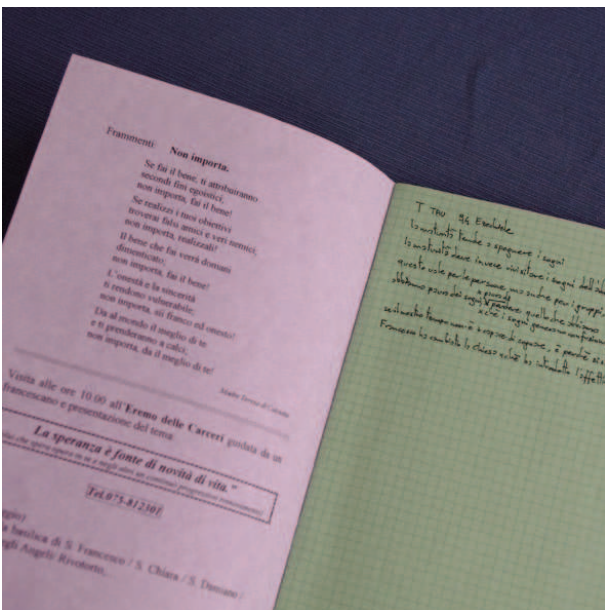 Frammenti Non importa.
Se fai il bene, ti attribuiranno
secondi fini egoistici,
non importa, fai il bene!
Se realizzi i tuoi obiettivi
troverai falsi amici e veri nemici,
non importa, realizzali!
Il bene che fai verrà domani
dimenticato,
non importa, fai il bene!
L'onestà e la sincerità
ti rendono vulnerabile;
non importa, sii franco ed onesto!
Da al mondo il meglio di te
e ti prenderanno a calci,
non importa, da il meglio di te!
Madre Teresa di Calcutta
Visita alle ore 10.00 all'Eremo delle Carceri guidata da un
francescano e presentazione del tema
La speranza è fonte di novità di vita."
che spera opera in se e negli altri un continuo progressivo
Tel.075-812301
a basilica di S. Francesco / S. Chiara / S. Damiano /
egli Angeli/ Rivotorto.
T TAU
la maturità tende a spegnere i sogni
la maturità deve invece visitare i sogni dell'
questo vale per le persone, ma anche per i gruppi,
abbiamo paura dei sogni x perdere quello che abbiamo
x che i sogni generano
se il nostro tempo non è capace di sognare, è perché
Francesco ha cambiato la chiesa xché ha